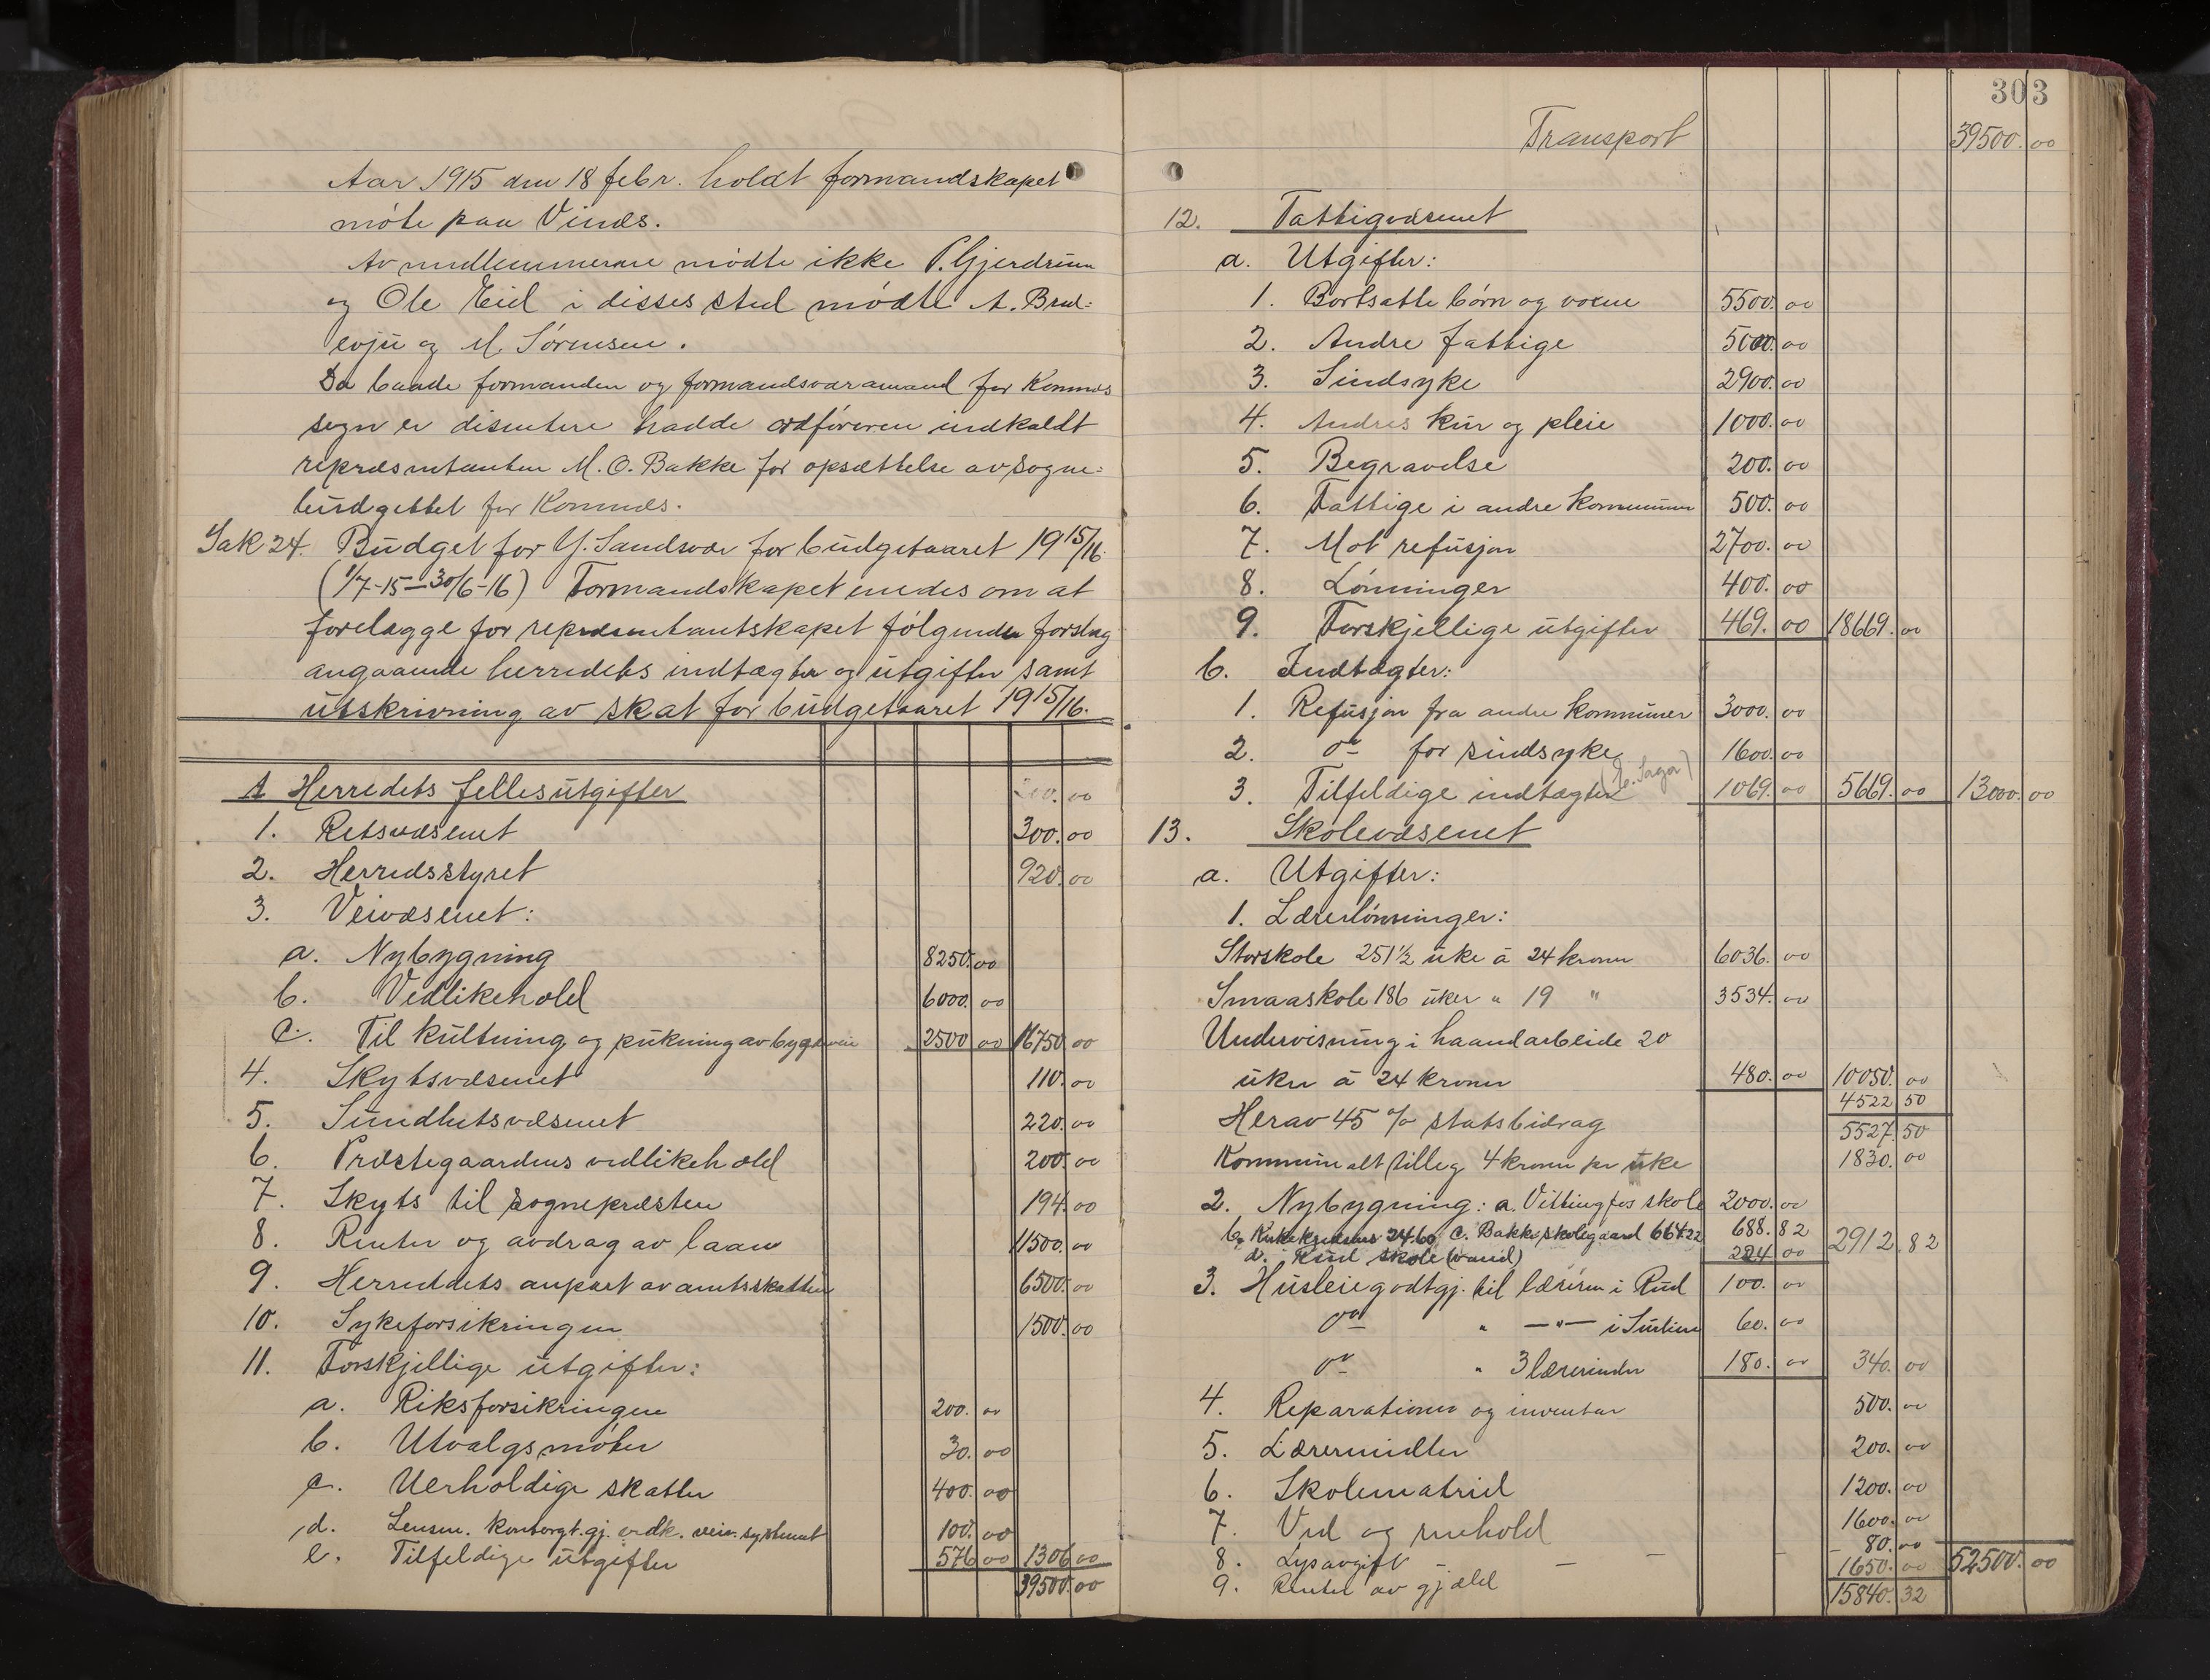 Aar 1915 den 18 febr. holdt formandskapet
møte paa Vinds.
Av medlemmerne mødte ikke P. Gjerdrum
og Ole Eid i disses sted mødte A. Bred-
evju og M. Sørensen.
Da baade formanden og formandsvaramand for Komnes
sogn er disentere hadde ordføreren indkaldt
repræsentanten M. O. Bakke for opsættelse av sogne-
budgettet for Komnes.
Sak 24. Budget for Y. Sandsvær for budgetaaret 1915/16.
(1/7-15 — 30/6-16) Formandskapet enedes om at
forelægge for repræsentantskapet følgende forslag
angaaende herredets indtægter og utgifter samt
utskrivning av skat for budgetaaret 1915/16.
A Herredets fellesutgifter
1. Retsvæsenet 300.00
2. Herredsstyret 920.00
3. Veivæsenet:
a. Nybygning 8250.00
b. Vedlikehold 6000.00
c. Til kultning og pukning av bygdeveie 2500 00 16750 00
4. Skytsvæsenet 110.00
5. Sundhetsvæsenet 220.00
6. Præstegaardens vedlikehold 200.00
7. Skyts til sognepræsten 194.00
8. Renter og avdrag av laan 11500.00
9. Herredets anpart av amtsskatten 6500.00
10. Sykeforsikringen 1500.00
11. Forskjellige utgifter:
a. Riksforsikringen 200.00
b. Utvalgsmøter 30.00
c. Uerholdige skatter 400.00
d. Lensm. kontorgt.gj. vedk. veiv. systemet 100.00
e. Tilfeldige utgifter 576 00 1306 00
39500.00
303
Transport 39500.00
12. Fattigvæsenet
a. Utgifter:
1. Bortsatte børn og voxne 5500.00
2. Andre fattige 5000.00
3. Sindsyke 2900.00
4. Andres kur og pleie 1000.00
5. Begravelse 200.00
6. Fattige i andre kommuner 500.00
7. Mot refusjon 2700.00
8. Lønninger 400.00
9. Forskjellige utgifter 469.00 18669.00
b. Indtægter:
1. Refusjon fra andre kommuner 3000.00
2. do for sindsyke 1600.00
3. Tilfeldige indtægter 1069.00 5669.00 13000.00
13. Skolevæsenet
a. Utgifter:
1. Lærerlønninger:
Storskole 251½ uke á 24 kroner 6036.00
Smaaskole 186 uker " 19 " 3534.00
Undervisning i haandarbeide 20
uker á 24 kroner 480.00 10050.00
4522 50
Herav 45 % statsbidrag 5527.50
Kommunalt tilleg 4 kroner pr uke 1830.00
2. Nybygning: a. Vittingfos skole 2000.00
b, 24.60 c. Bakke skolegaard 664 22 688.82 2912.82
d. Rud skole (vand) 224 00
3. Husleiegodtgj. til læreren i Rud 100.00
do " —"— i 60.00
do " 3 lærerinder 180.00 340.00
4. Reparationer og inventar 500.00
5. Lærermidler 200.00
6. Skolematriel 1200.00
7. Ved og renhold 1600.00
8. Lysavgift — — — 80.00
9. Renter av gjæld 1650.00 52500.00
15840.32